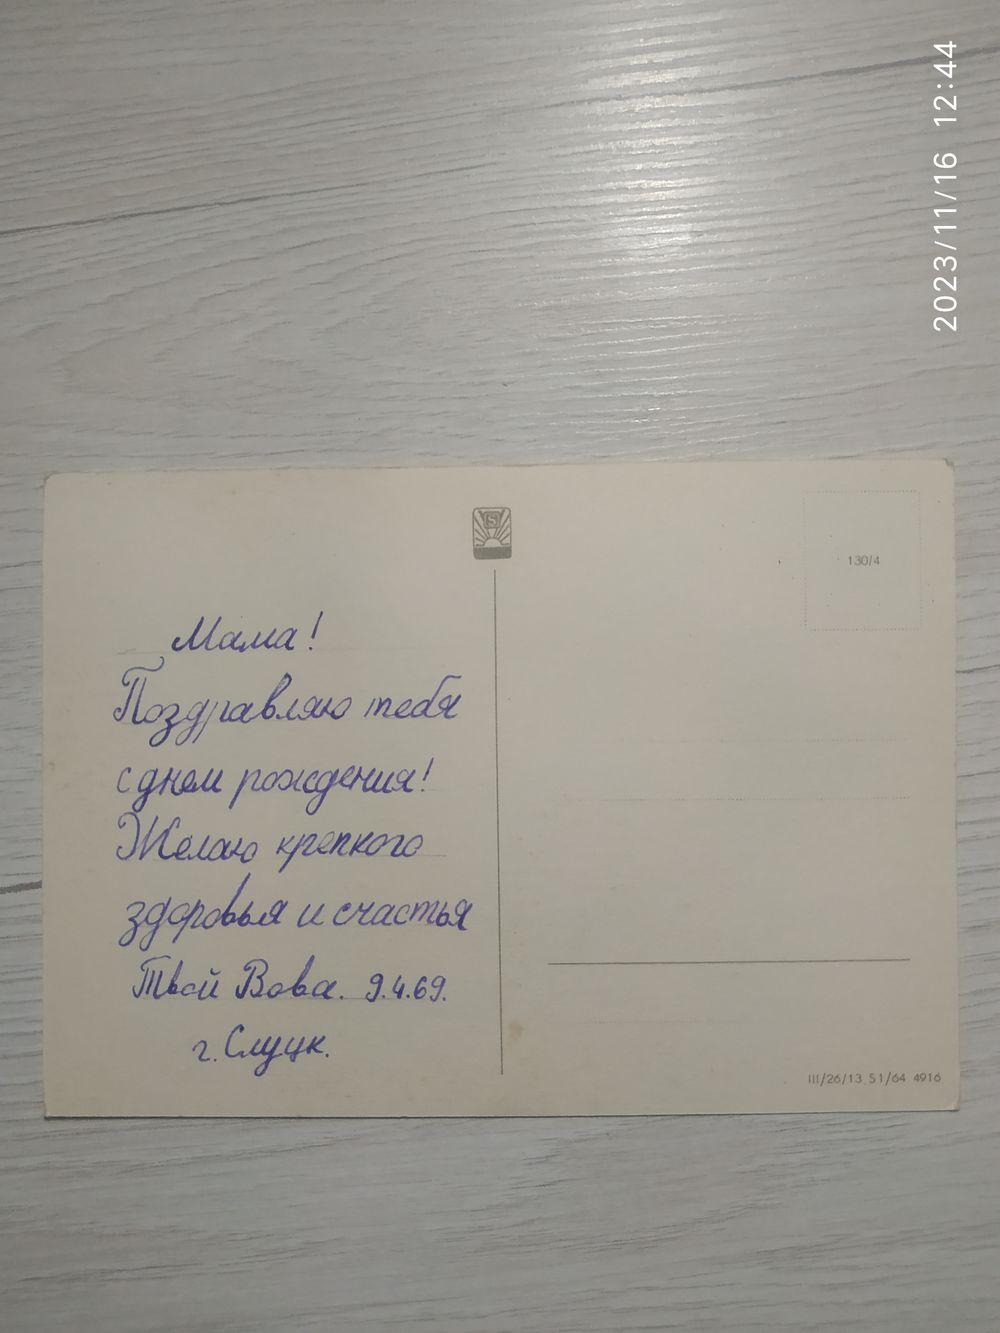 2023/11/16 12:44
S
130/4
Мама!
Поздравляю тебя
с днем рождения!
Желаю крепкого
здоровья и счастья
Твой Вова. 9.4.69.
г. Слуцк.
III/26/13 S1/64 4916